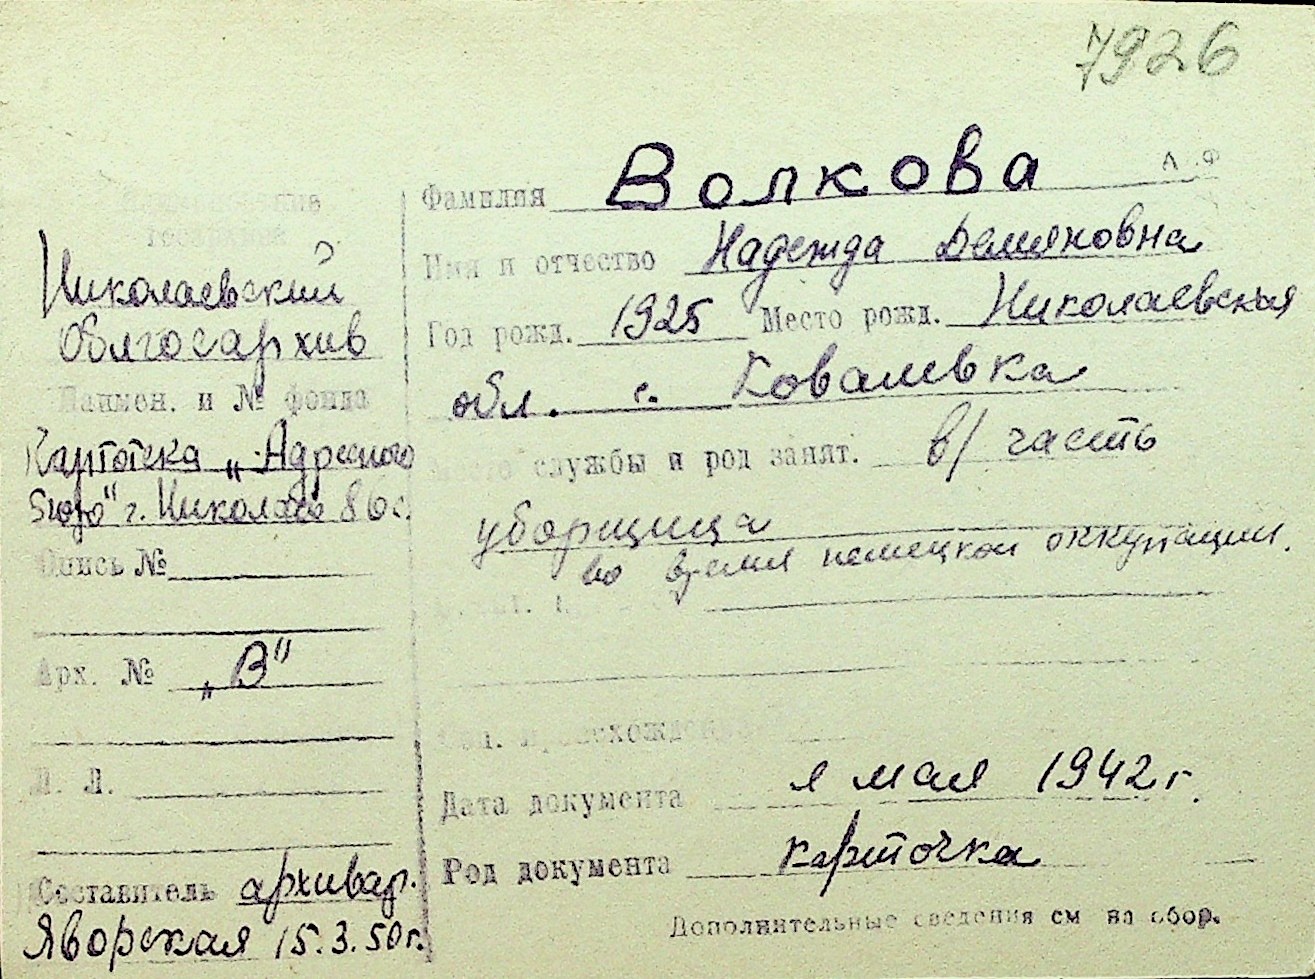 7926
Николаевский
Облгосархив
Наимен. и № фонда
Картотека „Адресного
г. Николаев
Опись №
Арх. № „В"
Л. Л.
Составитель архивар.
Яворская 15.3.50г.
Фамилия Волкова
Имя и отчество Надежда Демяновна
Год рожд. 1925 Место рожд. Николаевская
обл. с. Ковалевка
Место службы и род занят. в/часть
уборщица
во время немецкой оккупации.
Соц. происхождение
Дата документа мая 1942г.
Род документа карточка
Дополнительные сведения см на обор.